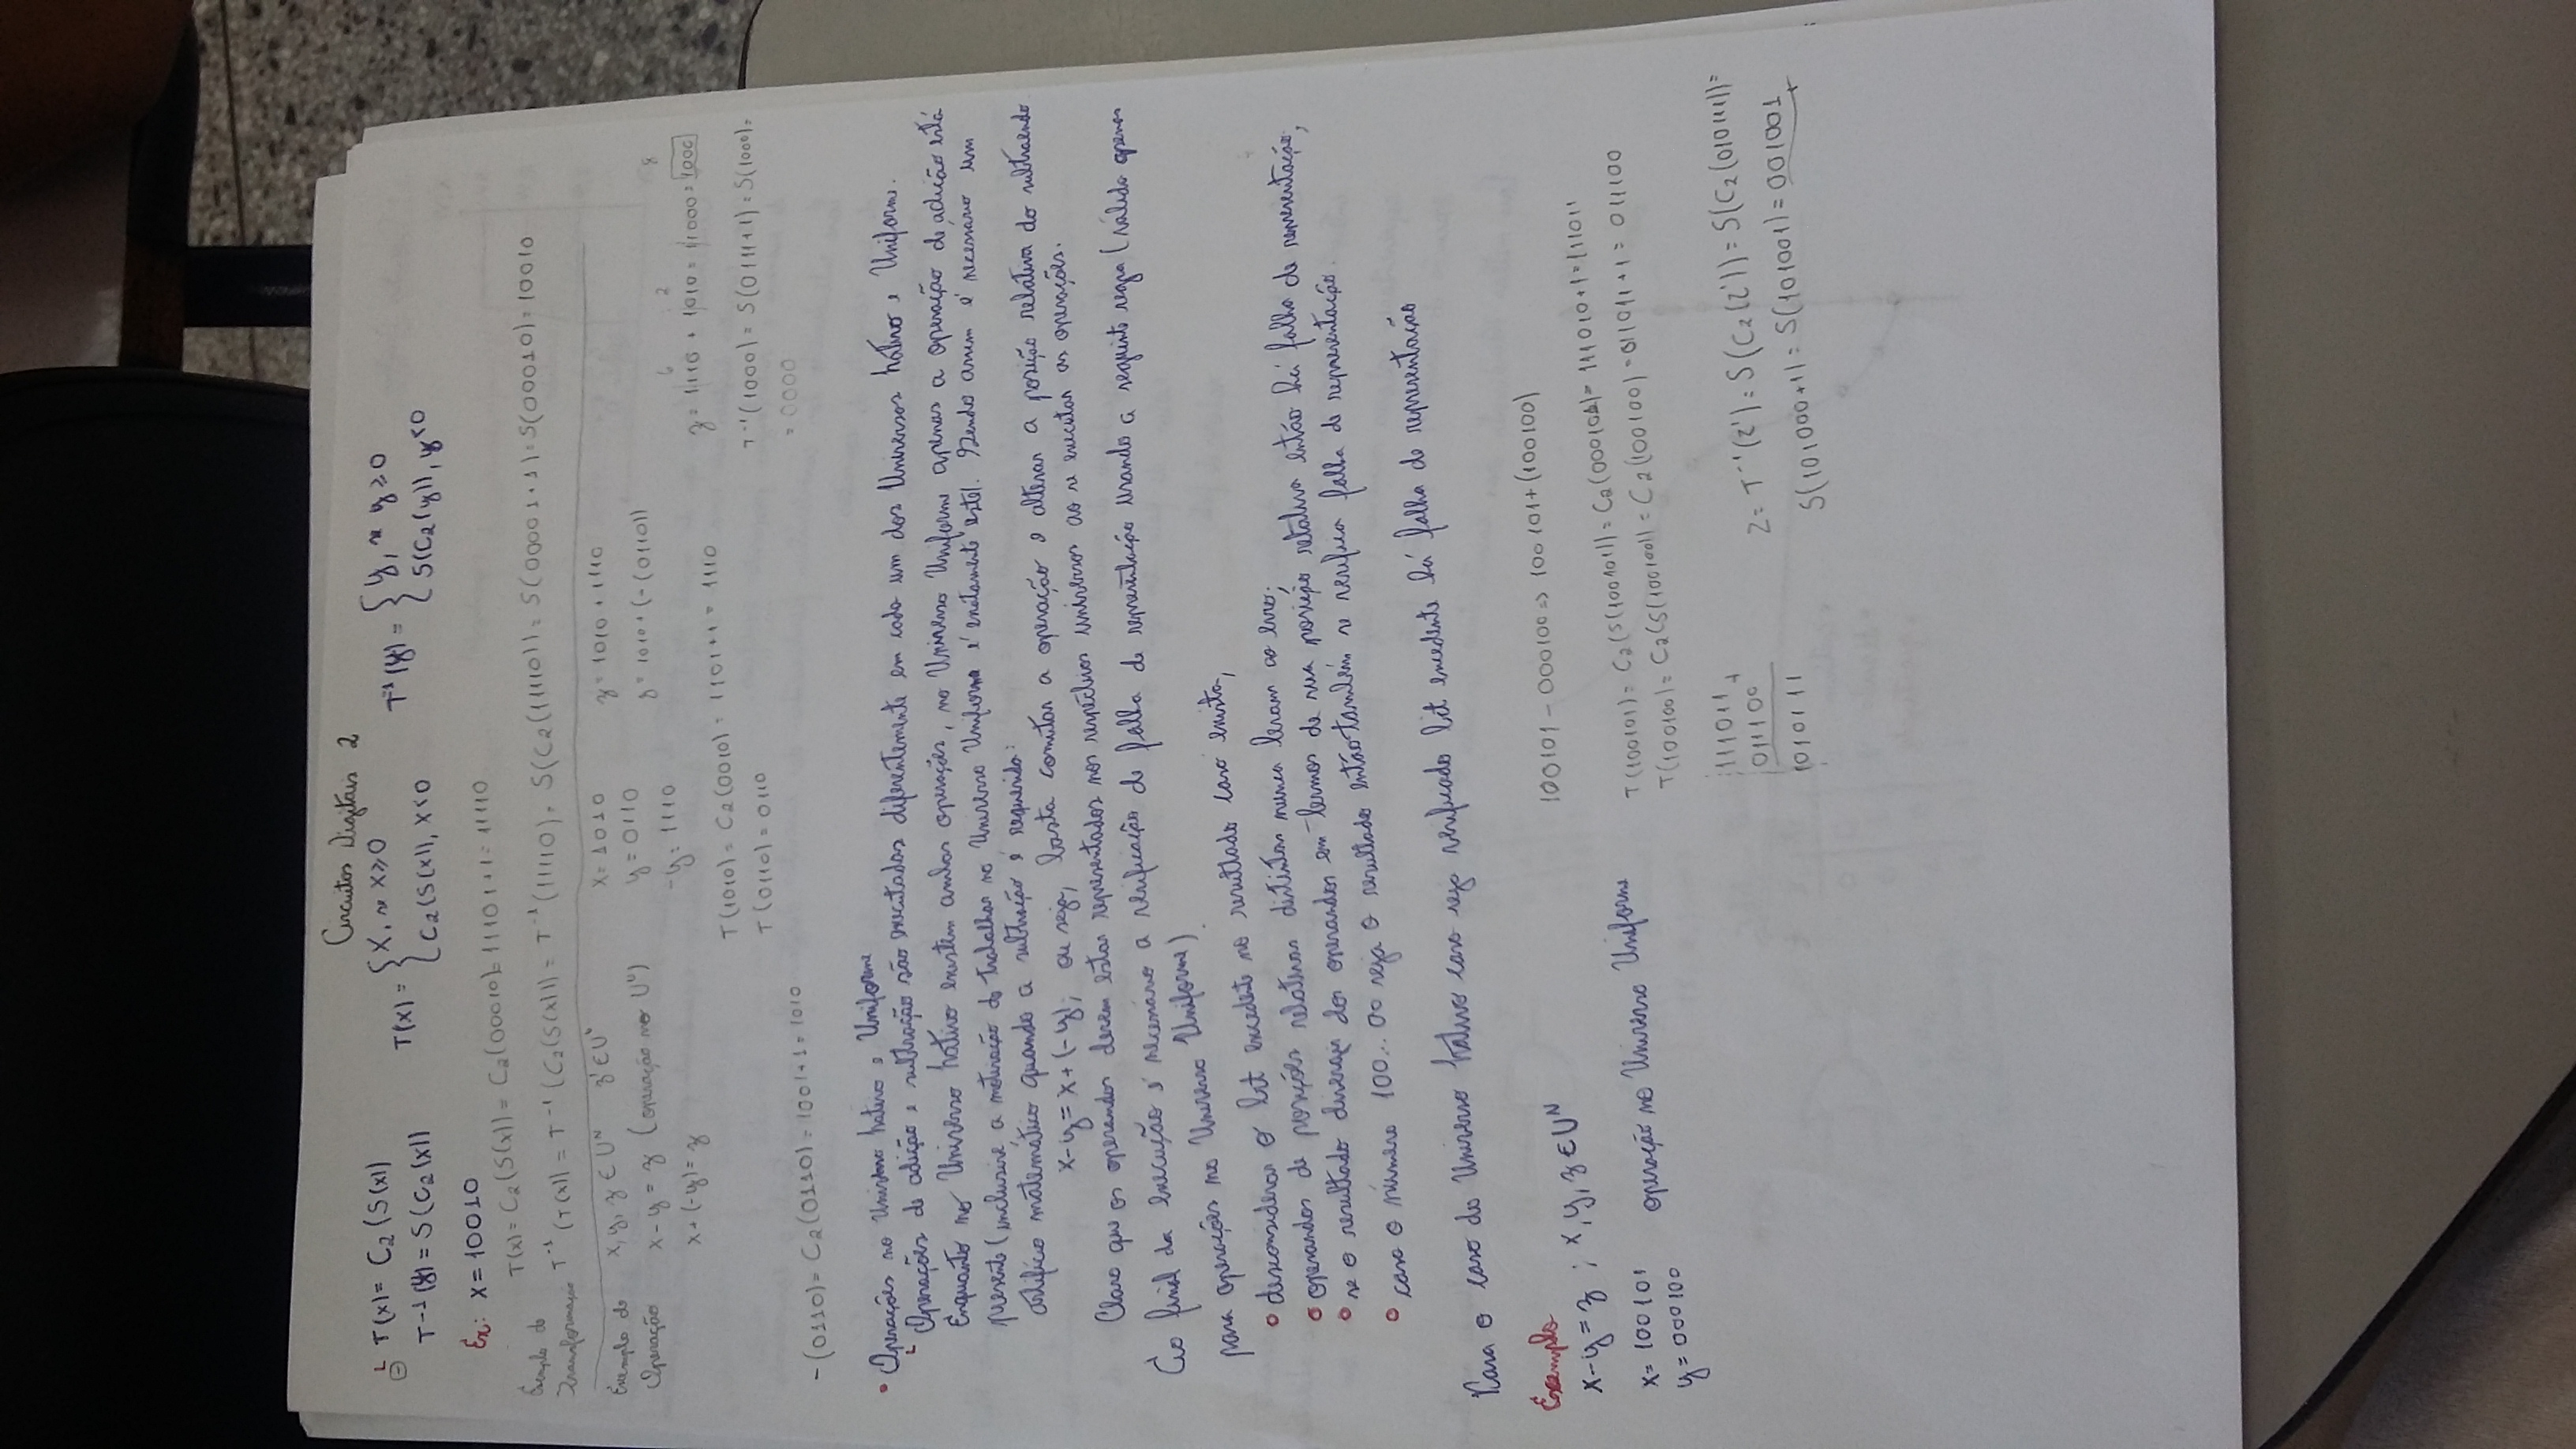 Circuitos Digitais 2
T(x) = C2(S(x))
T-1(y) = S(C2(x))
T(x) = { X, se x≥0
C2(S(x)), x<0
T-1(y) = { y, se y≥0
S(C2(y)), y<0
Ex: x = 10010
T(x) = C2(S(x)) = C2(00010) = 11101+1 = 11110
Exemplo de Transformação
T-1(T(x)) = T-1(C2(S(x))) = T-1(11110) = S(C2(11110)) = S(00001+1) = S(00010) = 10010
Exemplo de Operação
x, y, z ∈ UN z' ∈ UU
x-y = z (operação no UU)
x+(-y) = z
x = 1010
y = 0110
-y = 1110
z = 1010 + 1110
z = 1010 + (-(0110))
T(1010) = C2(0010) = 1101+1 = 1110
T(0110) = 0110
6 2 8
z = 1110 + 1010 = 11000 = 1000
T-1(1000) = S(0111+1) = S(1000) =
= 0000
-(0110) = C2(0110) = 1001+1 = 1010
• Operações no Universo Nativo e Uniforme
Operações de adição e subtração são executadas diferentemente em cada um dos Universos Nativo e Uniforme.
Enquanto no Universo Nativo existem ambas operações, no Universo Uniforme apenas a operação de adição está
presente (inclusive, a motivação de trabalhar no Universo Uniforme é exatamente este). Sendo assim é necessário um
artifício matemático quando a subtração é requerida:
x-y = x+(-y); ou seja, basta comutar a operação e alterar a posição relativa do subtraendo
Claro que os operandos devem estar representados nos respectivos universos ao se executar as operações.
Ao final da execução é necessário a verificação de falha de representação usando a seguinte regra (válida apenas
para operações no Universo Uniforme)
° desconsiderar o bit excedente no resultado caso exista;
° operandos de posições relativas distintas nunca levam ao erro;
° se o resultado divergir dos operandos em termos de sua posição relativa então há falha de representação;
° caso o número 100...00 seja o resultado então também se verifica falha de representação.
Para o caso do Universo Nativo caso seja verificado bit excedente há falha de representação
Exemplo
x-y = z ; x, y, z ∈ UN
x = 100101
y = 000100
operação no Universo Uniforme
100101 - 000100 => 100101+(100100)
T(100101) = C2(S(100101)) = C2(000101) = 111010+1 = 111011
T(100100) = C2(S(100100)) = C2(100100) = 011011+1 = 011100
111011 +
011100
1010111
Z = T-1(Z') = S(C2(Z')) = S(C2(010111)) =
S(101000+1) = S(101001) = 001001